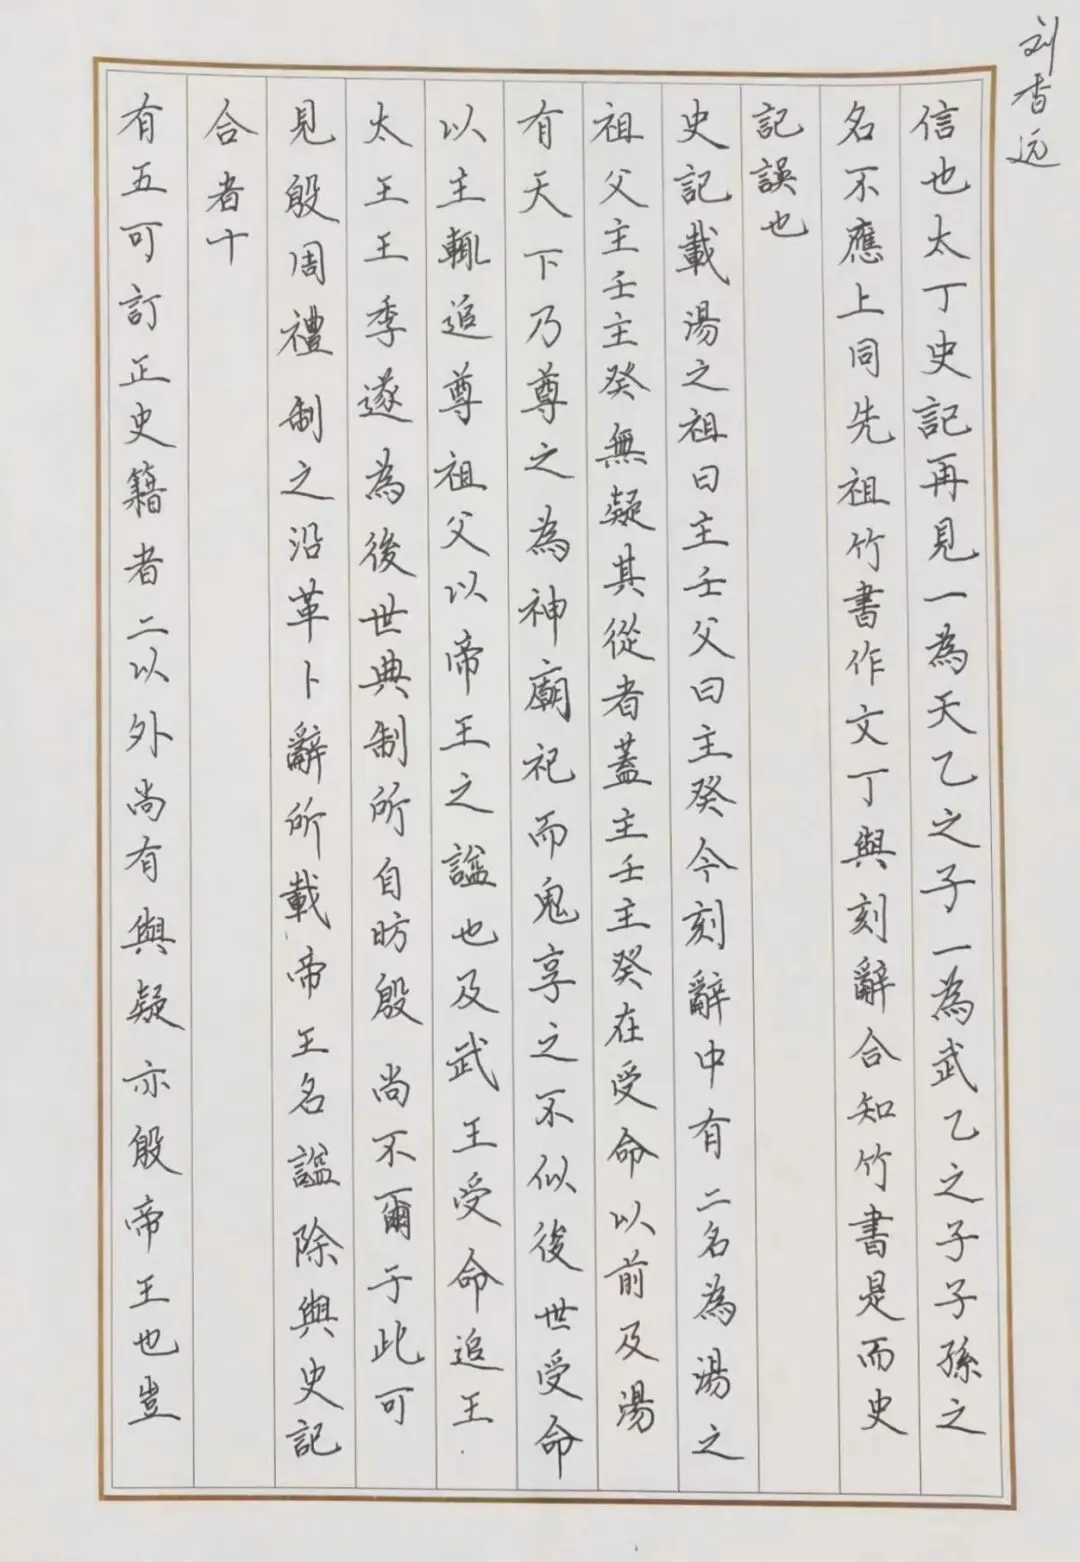 刘杏远
信也太丁史記再見一為天乙之子一為武乙之子子孫之
名不應上同先祖竹書作文丁與刻辭合知竹書是而史
記誤也
史記載湯之祖曰主壬父曰主癸今刻辭中有二名為湯之
祖父主壬主癸無疑其從者蓋主壬主癸在受命以前及湯
有天下乃尊之為神廟祀而鬼享之不似後世受命
以主輒追尊祖父以帝王之諡也及武王受命追王
太王王季遂為後世典制所自昉殷尚不爾于此可
見殷周禮制之沿革卜辭所載帝王名諡除與史記
合者十
有五可訂正史籍者二以外尚有與疑亦殷帝王也豈